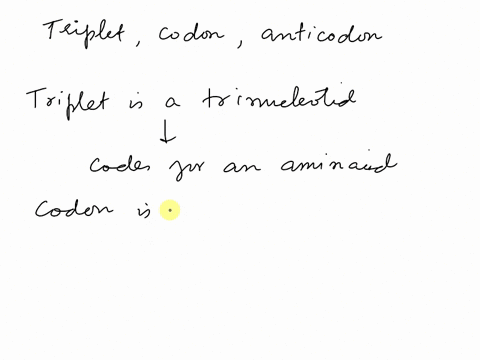 Triplet, codon, anticodon
Triplet is a trinucleotid
↓
Codes for an aminoacid
Codon is